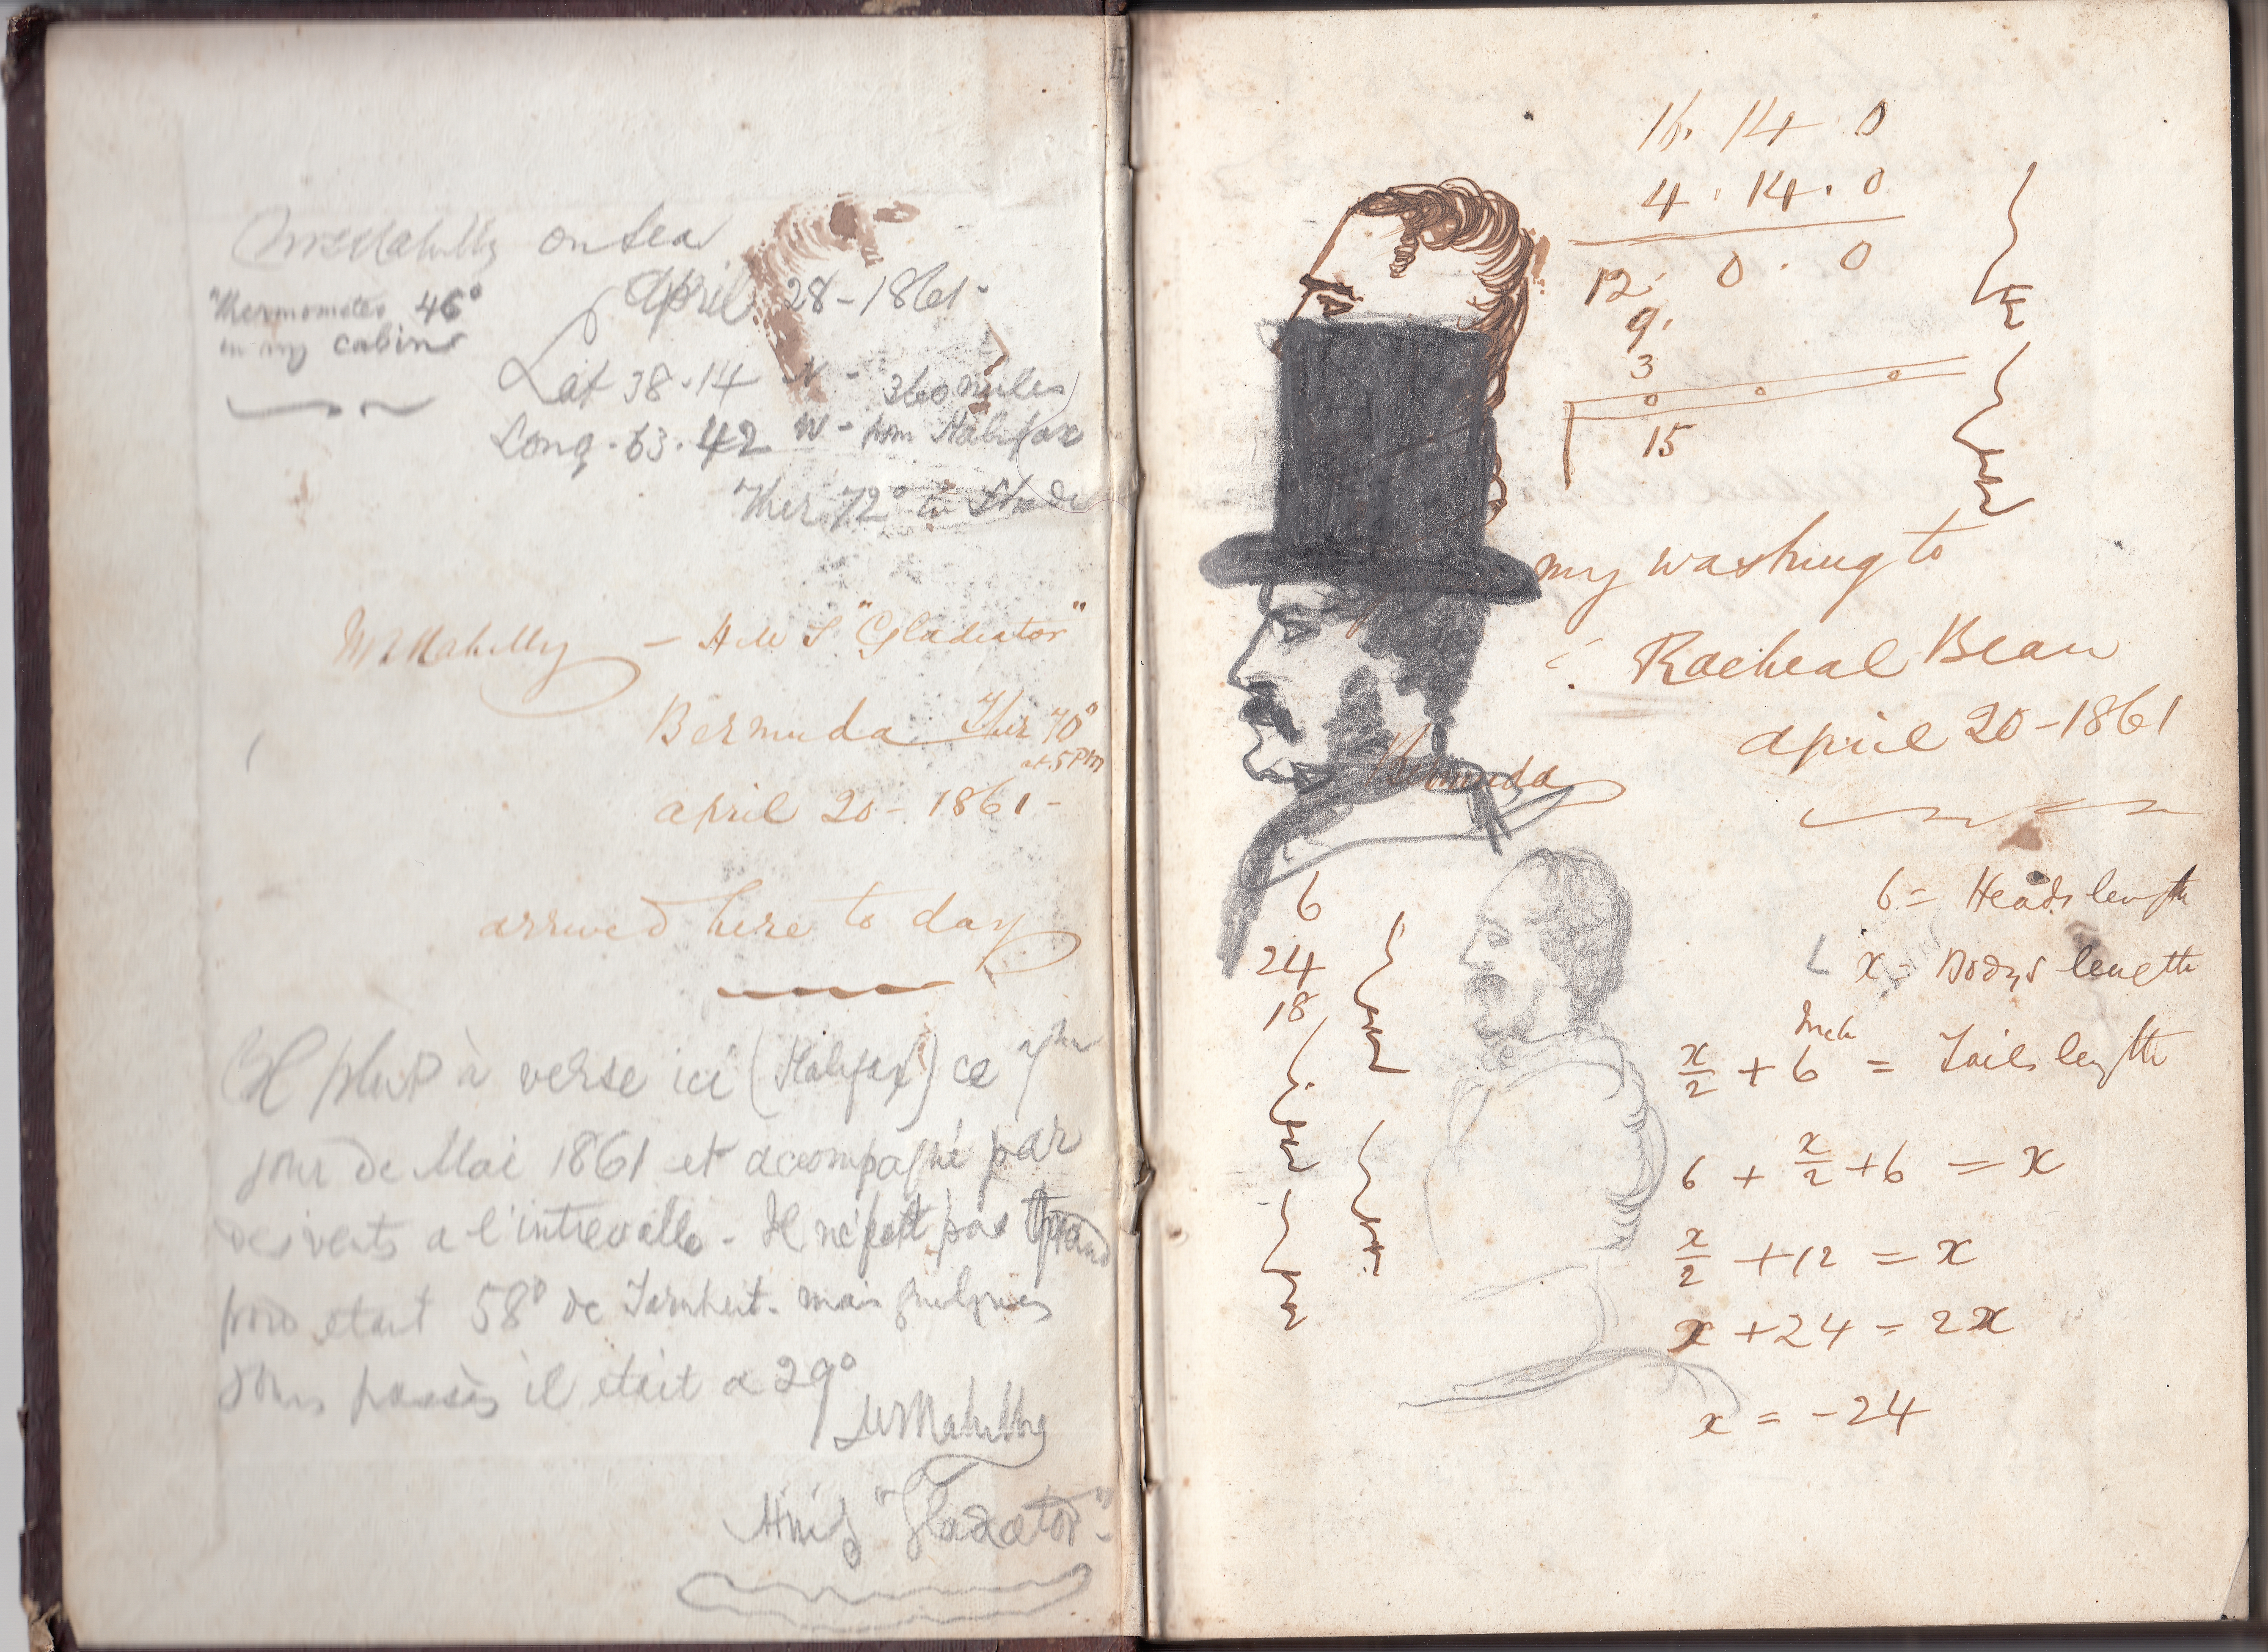 on Sea
April 28 - 1861 -
Thermometer 46°
in my cabin
Lat 38.14 N - 360 miles
Long. 63.42 W - from Halifax
Ther 72° in Shade
- H M S "Gladiator"
Bermuda Ther 70°
at 5 PM
April 20 - 1861 -
arrived here to day
Il pleut à verse ici (Halifax) ce
jour de Mai 1861 et accompagné par
des vents a l'intrevalle - Il ne fait pas
froid etant 58° de Farnheit. mais quelques
jours passès il etait a 29°
HMS "Gladiator" -
16. 14. 0
4. 14. 0
12. 0. 0
9.
3
0 0 0
15
my washing to
Racheal Bean
April 20 - 1861
Bermuda
6
24
18
6 = Heads length
x = Bodys length
Inch
x/2 + 6 = Tails length
6 + x/2 + 6 = x
x/2 + 12 = x
x + 24 = 2x
x = -24